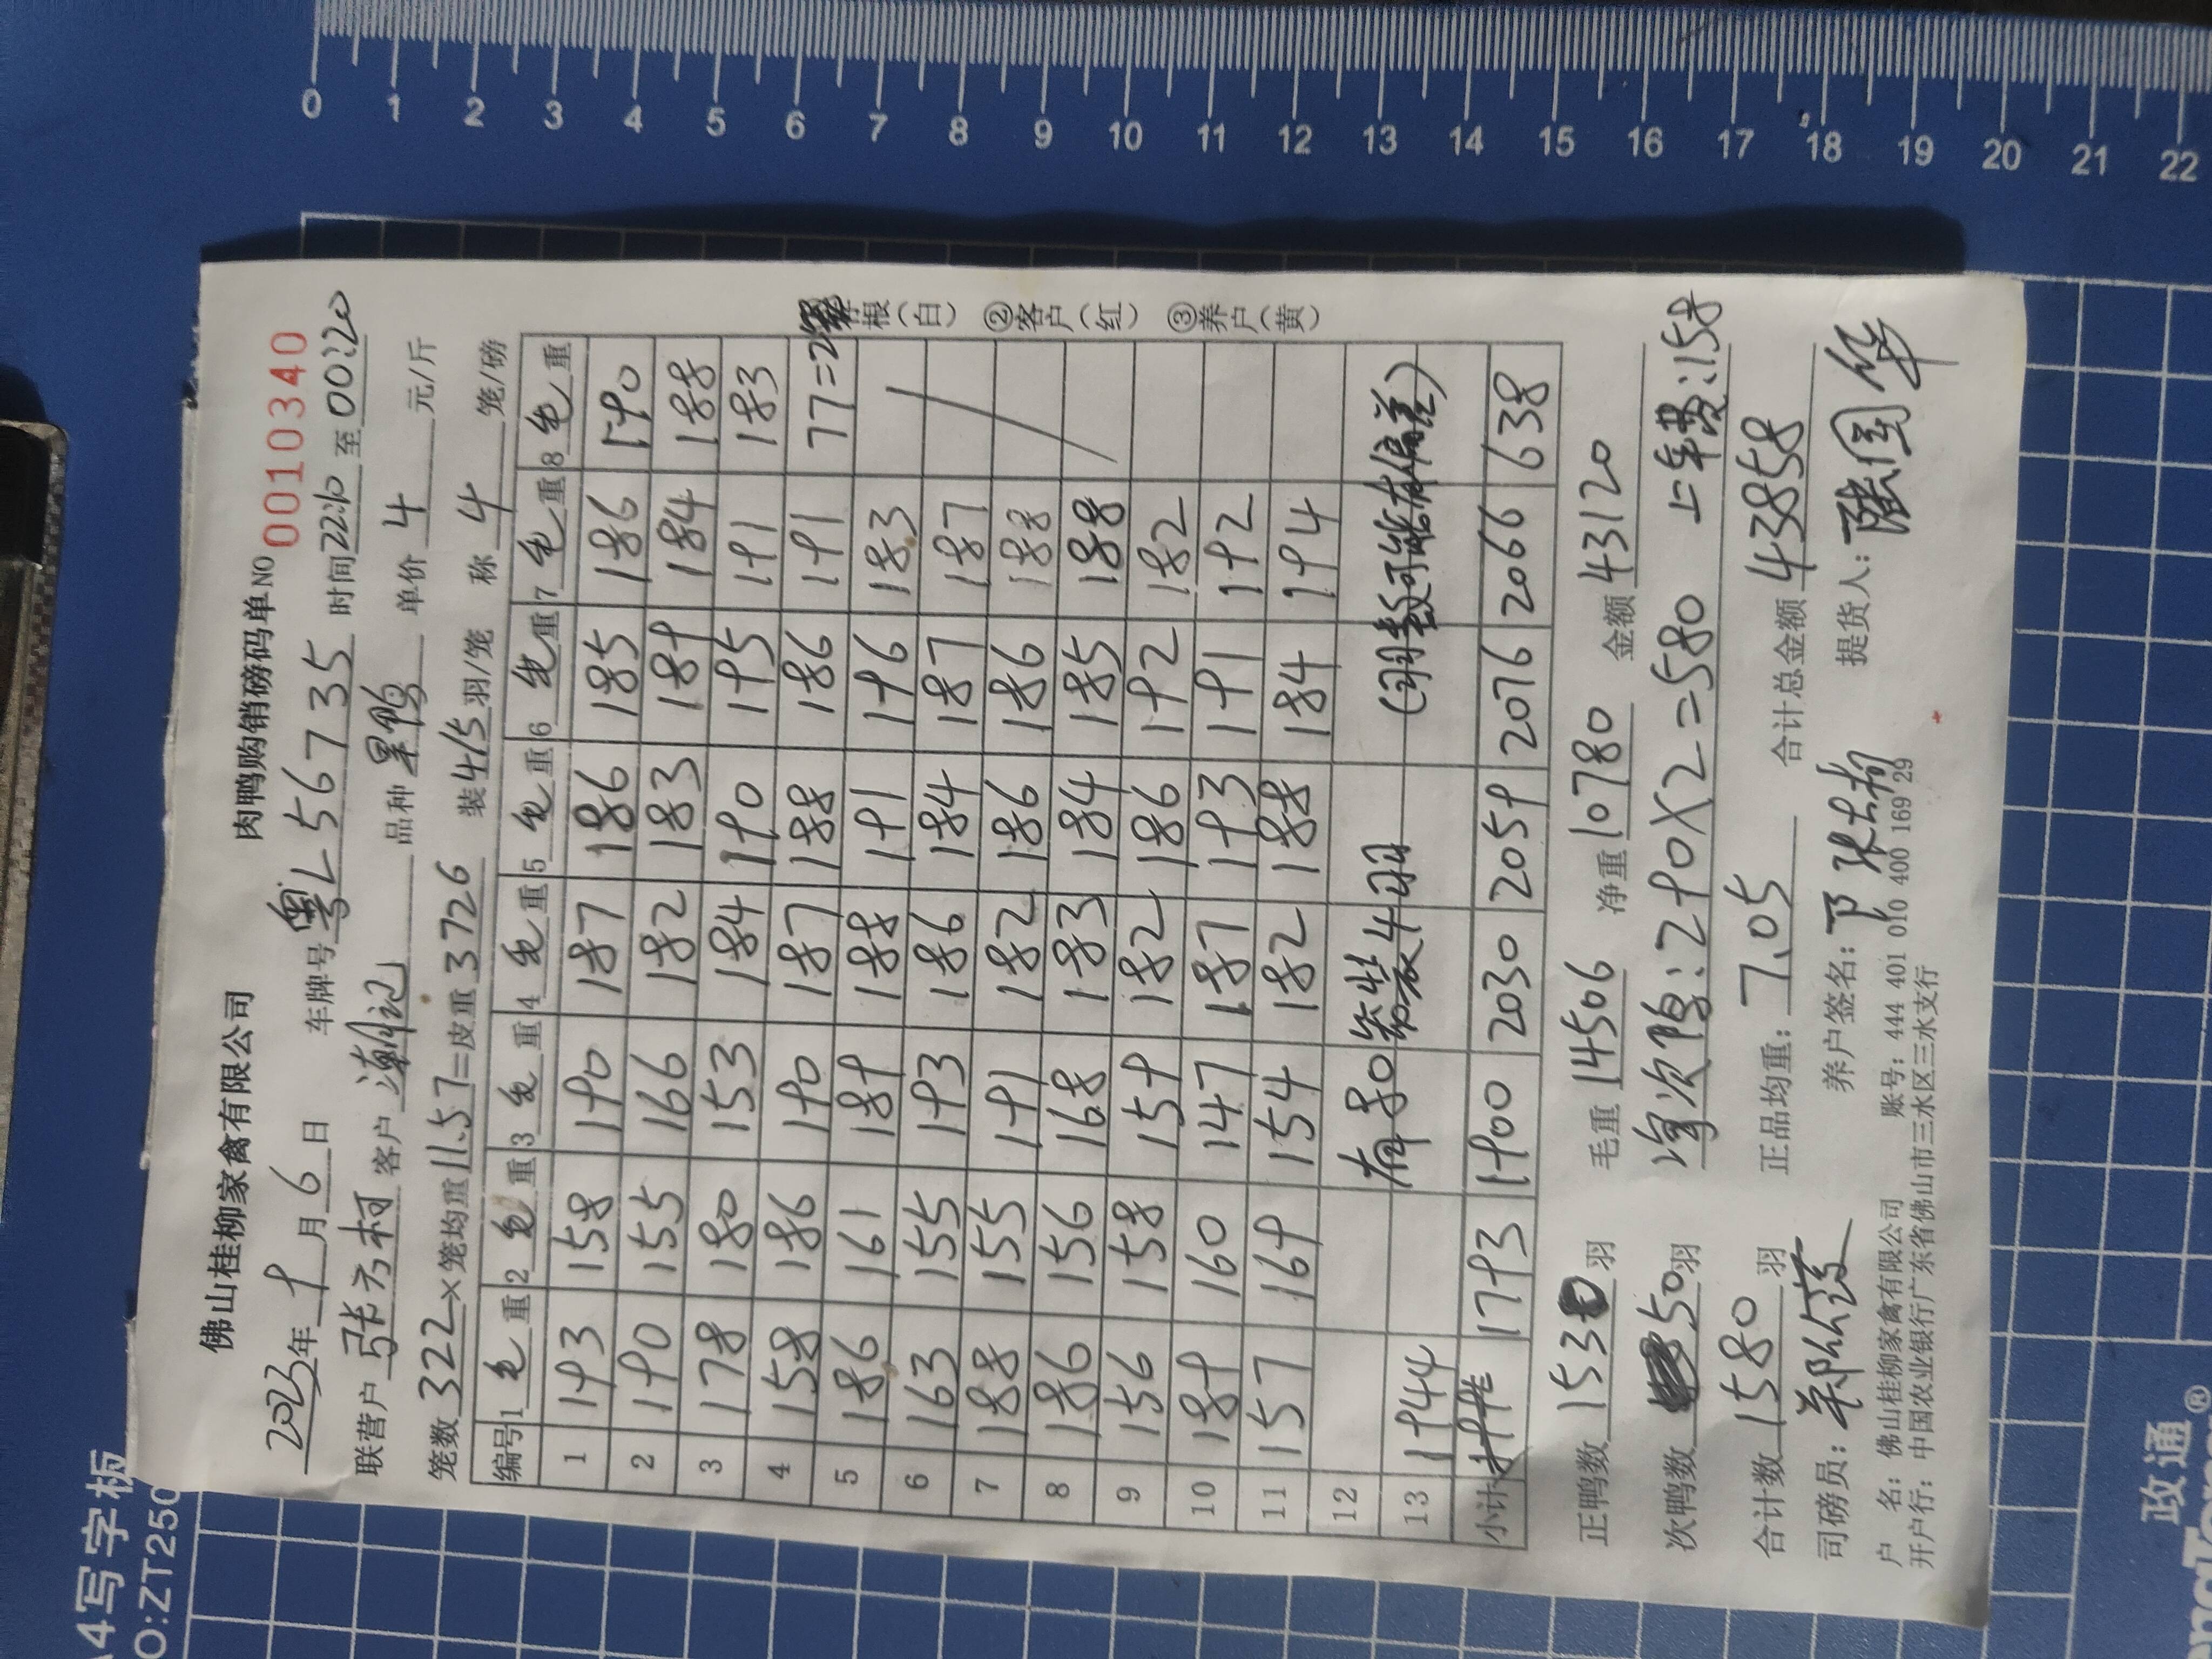 佛山桂柳家禽有限公司 肉鸭购销磅码单 NO 0010340
2023年 9 月 6 日 车牌号 粤L56735 时间 22:10 至 00:20
联营户 张云柯 客户 潮记 品种 单价 4 元/斤
笼数 322 × 笼均重 11.57 = 皮重 3726 装 4/5 羽/笼 称 4 笼/磅
编号 1 毛 重 2 毛 重 3 毛 重 4 毛 重 5 毛 重 6 毛 重 7 毛 重 8 毛 重
1 193 158 190 187 186 185 186 190
2 190 155 166 182 183 189 184 188
3 178 180 153 184 190 195 191 183
4 158 186 190 187 188 186 191 77=2
5 186 161 189 188 191 196 183
6 163 155 193 186 184 187 187
7 188 155 191 182 186 186 188
8 186 156 168 183 184 185 188
9 156 158 159 182 186 192 182
10 189 160 147 187 193 191 192
11 157 169 154 182 188 184 194
12
有50笼装4羽 (羽数可能有偏差)
13 1944
小计 1793 1900 2030 2059 2076 2066 638
存根(白) ②客户(红) ③养户(黄)
正鸭数 1530 羽 毛重 14506 净重 10780 金额 43120
次鸭数 50 羽 次鸭: 290×2=580 上车费:158
合计数 1580 羽 正品均重: 7.05 合计总金额 43858
司磅员: 养户签名: 提货人: 国华
户 名: 佛山桂柳家禽有限公司 账号: 444 401 010 400 169 29
开户行: 中国农业银行广东省佛山市三水区三水支行
0 1 2 3 4 5 6 7 8 9 10 11 12 13 14 15 16 17 18 19 20 21 22
A4写字板
O:ZT250
政通®